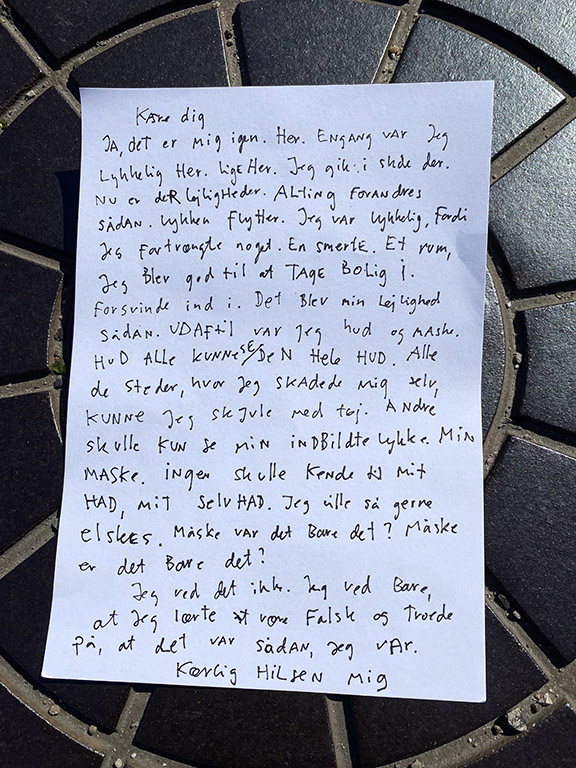 Kære dig
JA, det er mig igen. Her. ENGANG var Jeg
Lykkelig Her. ligE Her. Jeg gik i skole der.
NU er deR lejligheder. ALting FORANDRES
SÅDAN. Lykken flytter. Jeg var lykkelig, Fordi
Jeg fortrængte noget. En smertE. Et rum,
Jeg Blev god til at TAGE BOLIG i.
Forsvinde ind i. Det Blev min Lejlighed
SÅDAN. UDAFtil var Jeg hud og MASKE.
HUD ALLE KUNNE SE/DEN Hele HUD. Alle
de steder, hvor Jeg SKADEDE MIG selv,
KUNNE Jeg skjule med tøj. ANDRE
skulle KUN se MIN INDBILDTE Lykke. MIN
MASKE. iNGEN skulle Kende til Mit
HAD, MIT SelvHAD. Jeg ville så gerne
elskES. Måske var det Bare det? Måske
er det Bare det?
Jeg ved det ikke. Jeg ved Bare,
at Jeg lærte at være Falsk og Troede
på, at det var sådAN, jeg vAr.
Kærlig HILSEN Mig